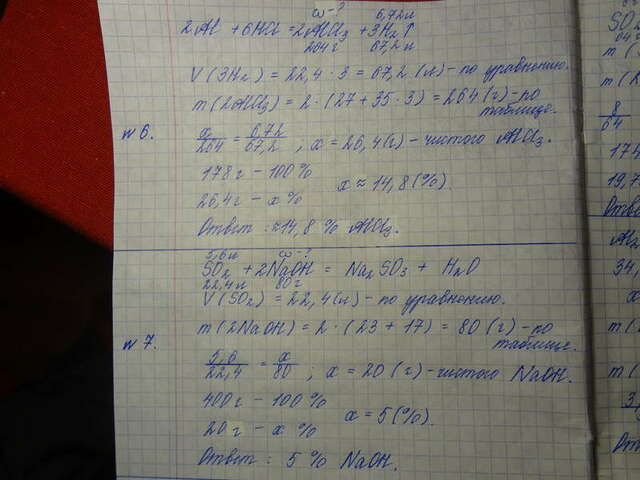 ω-? 6,72л
2Al + 6HCl = 2AlCl₃ + 3H₂↑
264г 67,2л
V(3H₂) = 22,4 · 3 = 67,2 (л) - по уравнению.
m(2AlCl₃) = 2 · (27 + 35 · 3) = 264 (г) - по таблице.
№ 6. x/264 = 6,72/67,2 , x = 26,4 (г) - чистого AlCl₃.
178г - 100%
26,4г - x %
x ≈ 14,8 (%).
Ответ: ≈14,8 % AlCl₃.
5,6л ω-?
SO₂ + 2NaOH = Na₂SO₃ + H₂O
22,4л 80г
V(SO₂) = 22,4 (л) - по уравнению.
m(2NaOH) = 2 · (23 + 17) = 80 (г) - по таблице.
№ 7. 5,6/22,4 = x/80 ; x = 20 (г) - чистого NaOH.
400г - 100 %
20г - x %
x = 5 (%).
Ответ: 5 % NaOH.
SO₂
64г
m(
m(
8
64
174
19,7
Отве
Al₂
34,
x
m(
m(
3,
Отв